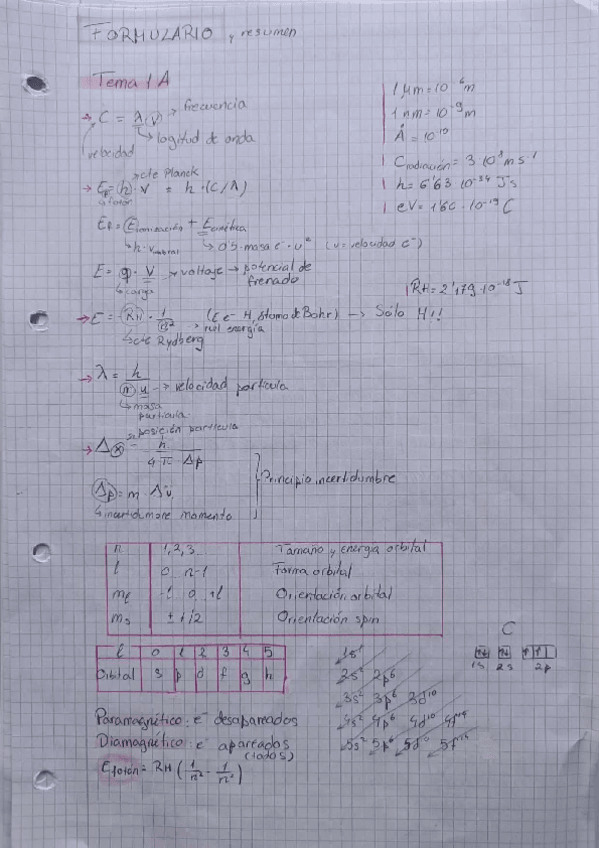 FORMULARIO y resumen
Tema 1A
→ C = λ·(ν) → frecuencia
velocidad
→ logitud de onda
1 μm = 10⁻⁶ m
1 nm = 10⁻⁹ m
Å = 10⁻¹⁰
C radiación = 3·10⁸ m s⁻¹
h = 6'63·10⁻³⁴ J s
eV = 1'60·10⁻¹⁹ C
→ cte Planck
→ E = (h)·ν = h·(C/λ)
fotón
= E ionización + E cinética
h·ν umbral
→ 0'5·masa e⁻·u² (u = velocidad e⁻)
E = q·V → voltaje → potencial de frenado
carga
RH = 2'179·10⁻¹⁸ J
→ E = RH·1/n² (E e⁻ H, átomo de Bohr) → Sólo H!!
→ nivel energía
→ cte Rydberg
→ λ = h / m u → velocidad partícula
→ masa partícula
posición partícula
→ Δx = h / 4 π Δp
Δp = m·Δu
incertidumbre momento
Principio incertidumbre
n 1,2,3... Tamaño y energía orbital
l 0 n-1 Forma orbital
mℓ -l 0 +l Orientación orbital
ms ± 1/2 Orientación spin
l 0 1 2 3 4 5
Orbital s p d f g h
1s²
2s² 2p⁶
3s² 3p⁶ 3d¹⁰
4s² 4p⁶ 4d¹⁰ 4f¹⁴
5s² 5p⁶ 5d¹⁰ 5f¹⁴
C
↑↓ ↑↓ ↑ ↑
1s 2s 2p
Paramagnético: e⁻ desapareados
Diamagnético: e⁻ apareados
(todos)
E fotón = RH (1/n² - 1/n²)